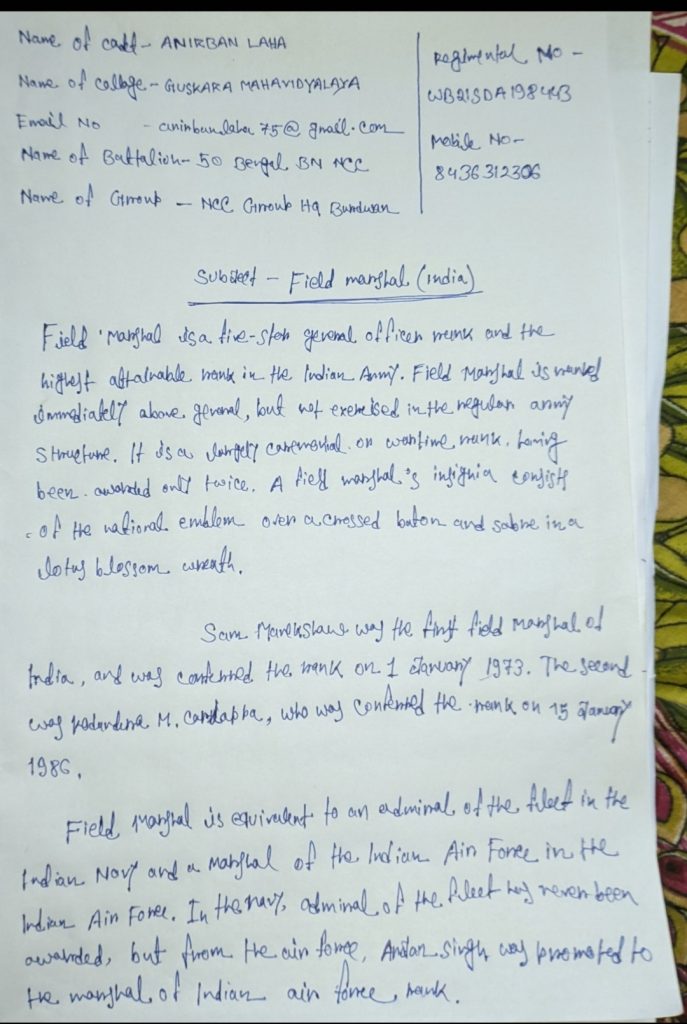 Name of cadet - ANIRBAN LAHA
Name of college - GUSKARA MAHAVIDYALAYA
Email No - anirbanlaha75@gmail.com
Name of Battalion - 50 Bengal BN NCC
Name of Group - NCC Group HQ Burdwan
Regimental No -
WB21SDA198443
Mobile No -
8436312306
Subject - Field marshal (india)
Field Marshal is a five-star general officer rank and the
highest attainable rank in the Indian Army. Field Marshal is ranked
immediately above general, but not exercised in the regular army
structure. It is a largely ceremonial or wartime rank, having
been awarded only twice. A field marshal's insignia consists
of the national emblem over a crossed baton and sabre in a
lotus blossom wreath.
Sam Manekshaw was the first field Marshal of
India, and was conferred the rank on 1 January 1973. The second
was Kodandera M. Cariappa, who was conferred the rank on 15 January
1986.
Field Marshal is equivalent to an admiral of the fleet in the
Indian Navy and a Marshal of the Indian Air Force in the
Indian Air Force. In the navy, admiral of the fleet has never been
awarded, but from the air force, Arjan Singh was promoted to
the marshal of Indian air force rank.